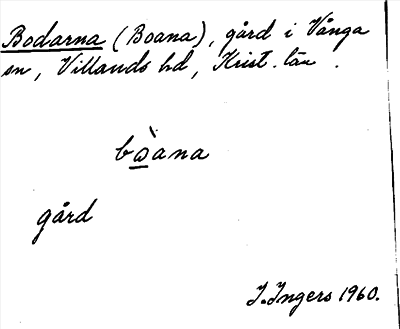 Bodarna (Boana), gård i Vånga
sn, Villands hd, Krist. län.
bòana
gård
I. Ingers 1960.